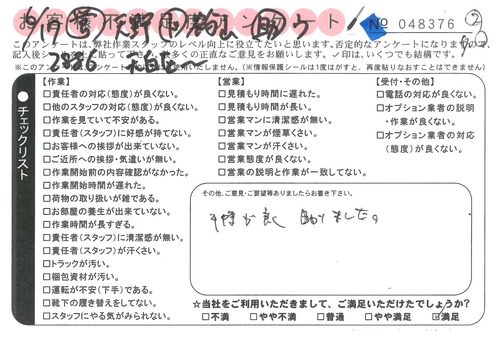 № 048376
このアンケートは、弊社作業スタッフのレベル向上に役立てたいと思います。否定的なアンケートになりますので、
【作業】
□責任者の対応(態度)が良くない。
□他のスタッフの対応(態度)が良くない。
□作業を見ていて不安がある。
□責任者(スタッフ)に好感が持てない。
□お客様への挨拶が出来ていない。
□ご近所への挨拶・気遣いが無い。
□作業開始前の内容確認がなかった。
□作業開始時間が遅れた。
□荷物の取り扱いが雑である。
□お部屋の養生が出来ていない。
□作業時間が長すぎる。
□責任者(スタッフ)に清潔感が無い。
□責任者(スタッフ)が汗くさい。
□トラックが汚い。
□梱包資材が汚い。
□運転が不安(下手)である。
□靴下の履き替えをしてない。
□スタッフにやる気がみられない。
【営業】
□見積もり時間に遅れた。
□見積もり時間が長い。
□営業マンに清潔感が無い。
□営業マンが煙草くさい。
□営業マンが汗くさい。
□営業態度が良くない。
□営業の説明と作業が一致してない。
【受付・その他】
□電話の対応が良くない。
□オプション業者の説明
・作業が良くない。
□オプション業者の対応
(態度)が良くない。
チェックリスト
その他、ご意見・ご要望等ありましたらお書き下さい。
助かりました。
☆当社をご利用いただきまして、ご満足いただけたでしょうか?
□不満 □やや不満 □普通 □やや満足 ☑満足